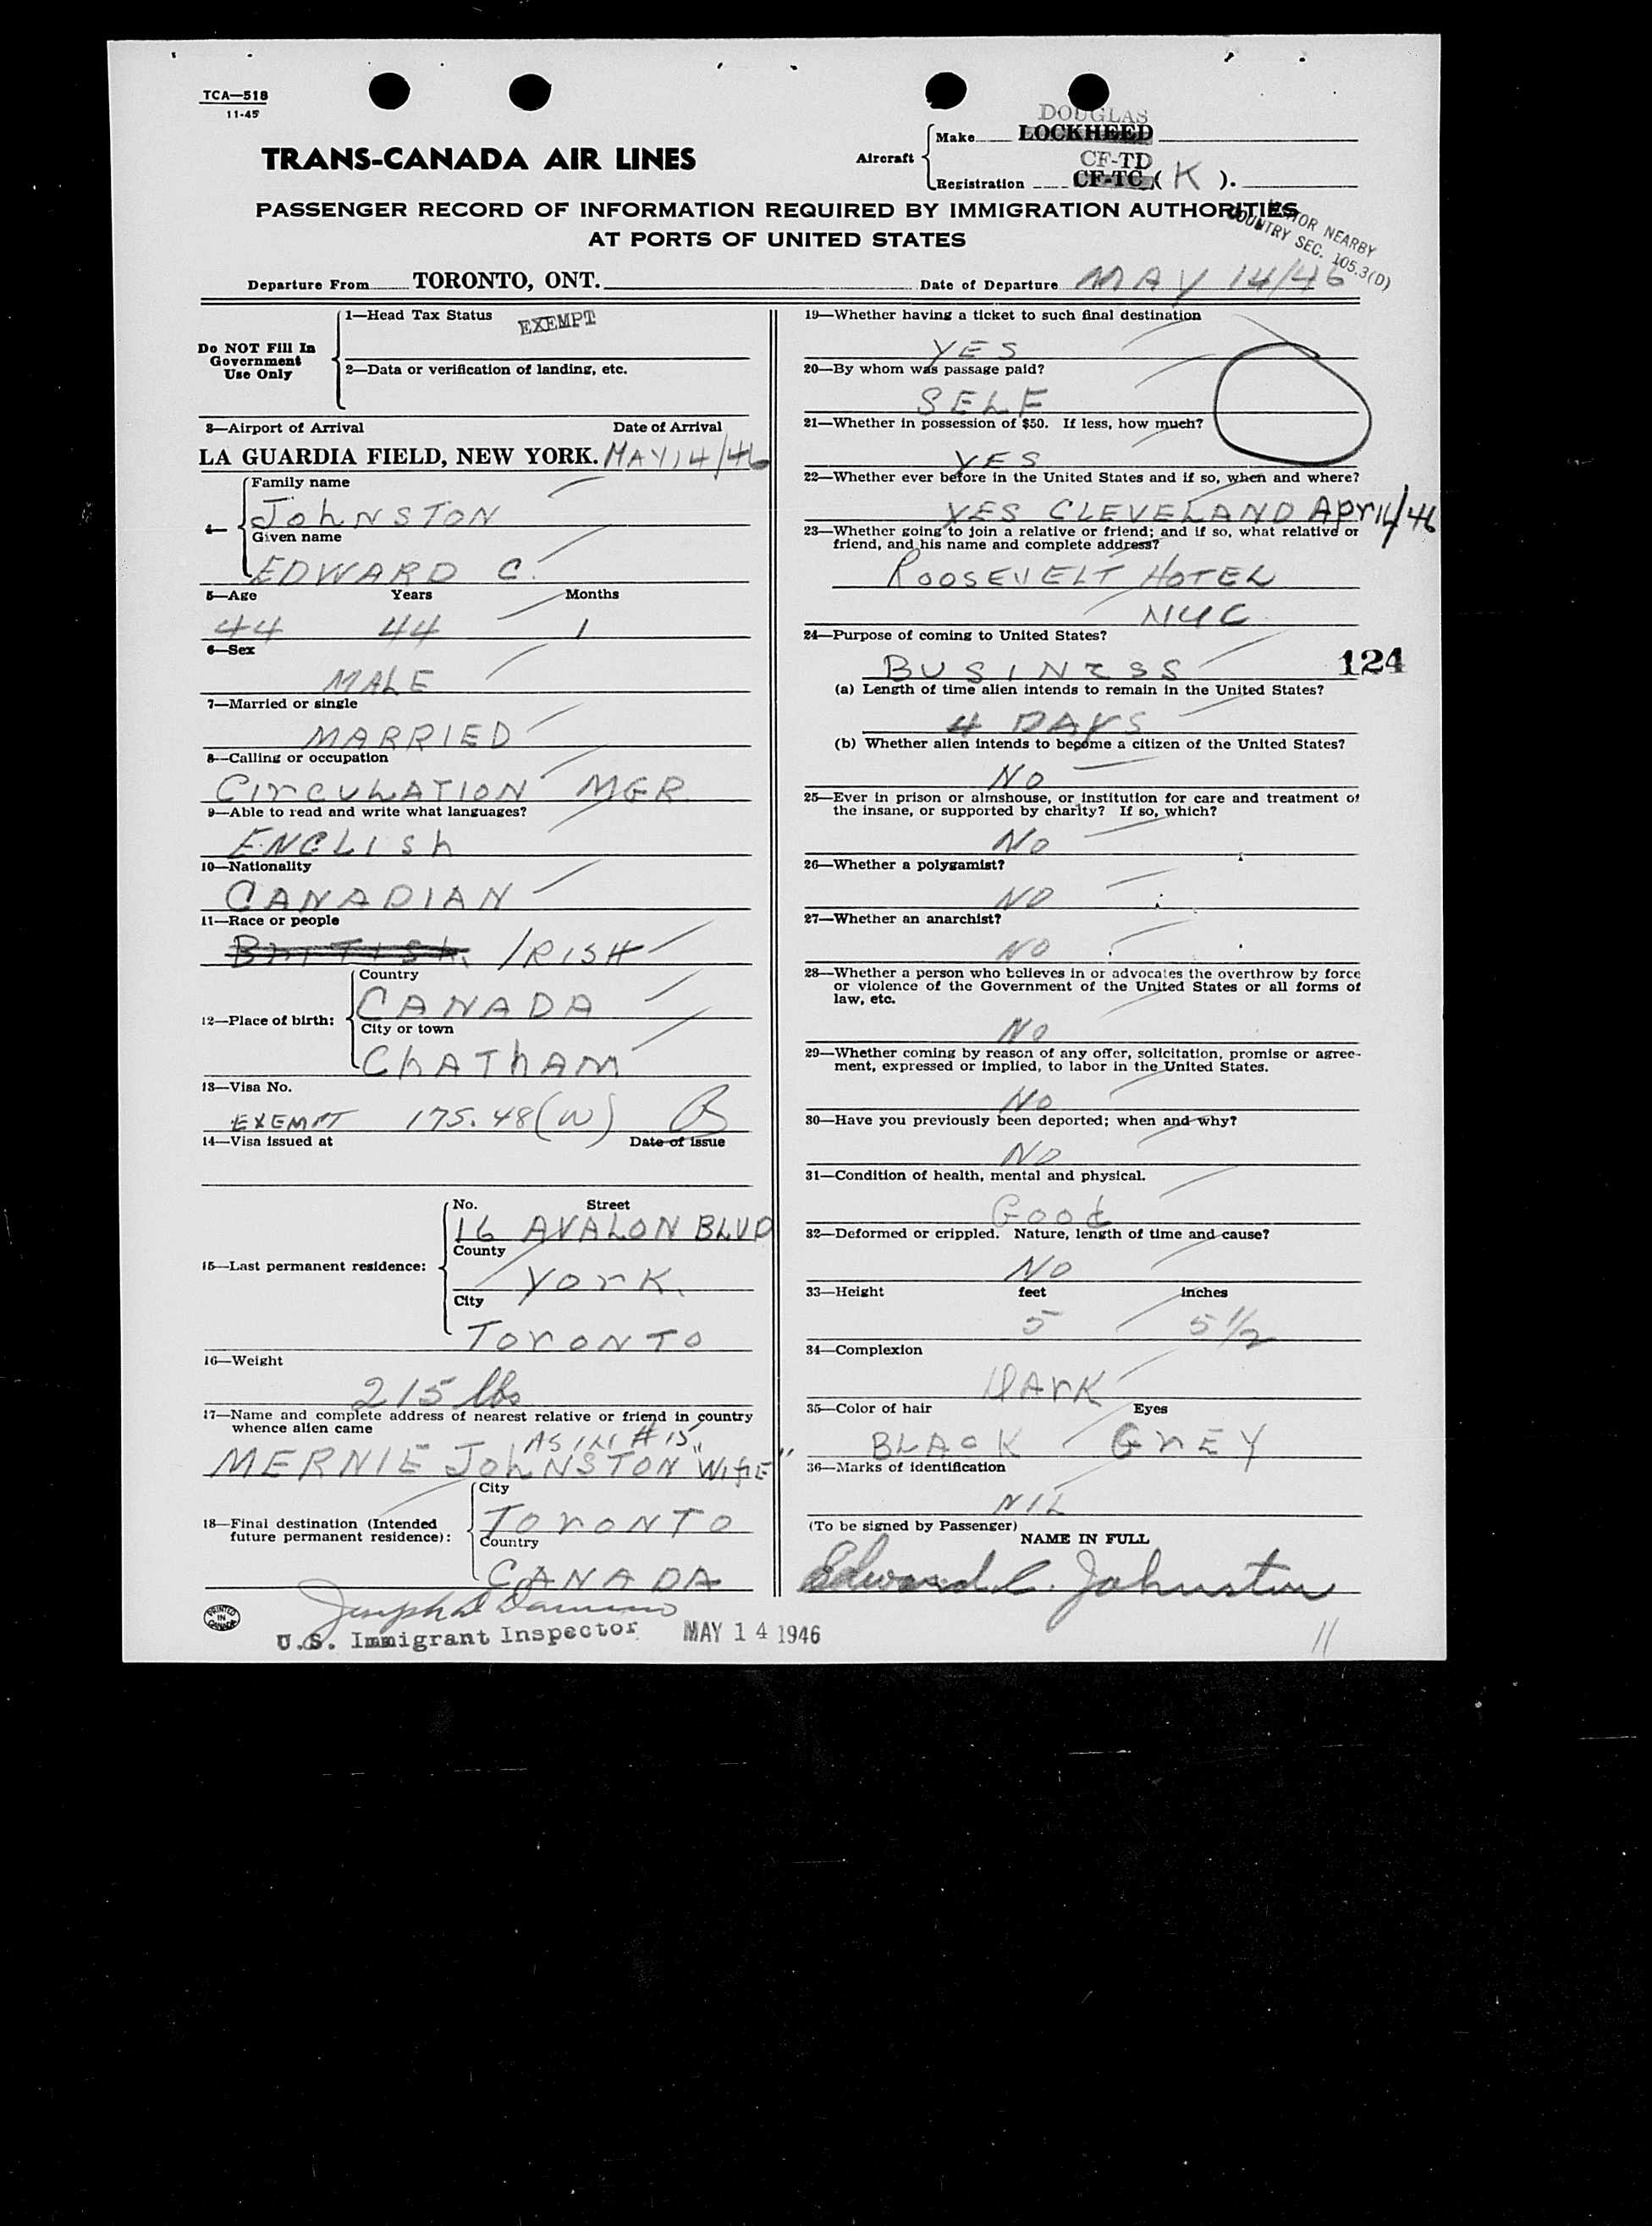 TCA—518
11-45
TRANS-CANADA AIR LINES
Aircraft
Make
DOUGLAS
LOCKHEED
CF-TD
Registration CF-TC ( K ).
PASSENGER RECORD OF INFORMATION REQUIRED BY IMMIGRATION AUTHORITIES
AT PORTS OF UNITED STATES
NEARBY
COUNTRY SEC. 105.3(D)
Departure From TORONTO, ONT.
Date of Departure MAY 14/46
Do NOT Fill In
Government
Use Only
1—Head Tax Status EXEMPT
2—Data or verification of landing, etc.
3—Airport of Arrival Date of Arrival
LA GUARDIA FIELD, NEW YORK. MAY 14/46
4—
Family name
JOhNSTON
Given name
EDWARD C.
5—Age Years Months
44 44 1
6—Sex
MALE
7—Married or single
MARRIED
8—Calling or occupation
CIrCULATION MGR.
9—Able to read and write what languages?
ENGLISh
10—Nationality
CANADIAN
11—Race or people
BrITISh. IRISH
12—Place of birth:
Country
CANADA
City or town
ChAThAM
13—Visa No.
EXEMPT 175.48(W)
14—Visa issued at Date of issue
15—Last permanent residence:
No. Street
16 AVALON BLVD
County
YOrK.
City
TOrONTO
16—Weight
215 lbs
17—Name and complete address of nearest relative or friend in country
whence alien came
AS IN #15
MERNIE JOhNSTON "WifE"
18—Final destination (Intended
future permanent residence):
City
TOrONTO
Country
CANADA
U.S. Immigrant Inspector MAY 14 1946
PRINTED
IN
CANADA
19—Whether having a ticket to such final destination
YES
20—By whom was passage paid?
SELF
21—Whether in possession of $50. If less, how much?
YES
22—Whether ever before in the United States and if so, when and where?
YES CLEVELAND
23—Whether going to join a relative or friend; and if so, what relative or
friend, and his name and complete address?
ROOSEVELT HOTEL
NYC
24—Purpose of coming to United States?
BUSINESS
124
(a) Length of time alien intends to remain in the United States?
4 DAYS
(b) Whether alien intends to become a citizen of the United States?
NO
25—Ever in prison or almshouse, or institution for care and treatment of
the insane, or supported by charity? If so, which?
NO
26—Whether a polygamist?
NO
27—Whether an anarchist?
NO
28—Whether a person who believes in or advocates the overthrow by force
or violence of the Government of the United States or all forms of
law, etc.
NO
29—Whether coming by reason of any offer, solicitation, promise or agree-
ment, expressed or implied, to labor in the United States.
NO
30—Have you previously been deported; when and why?
NO
31—Condition of health, mental and physical.
Good
32—Deformed or crippled. Nature, length of time and cause?
NO
33—Height feet inches
5 5 1/2
34—Complexion
DArK
35—Color of hair Eyes
BLACK GrEY
36—Marks of identification
NIL
(To be signed by Passenger)
NAME IN FULL
Edward C. Johnston
11